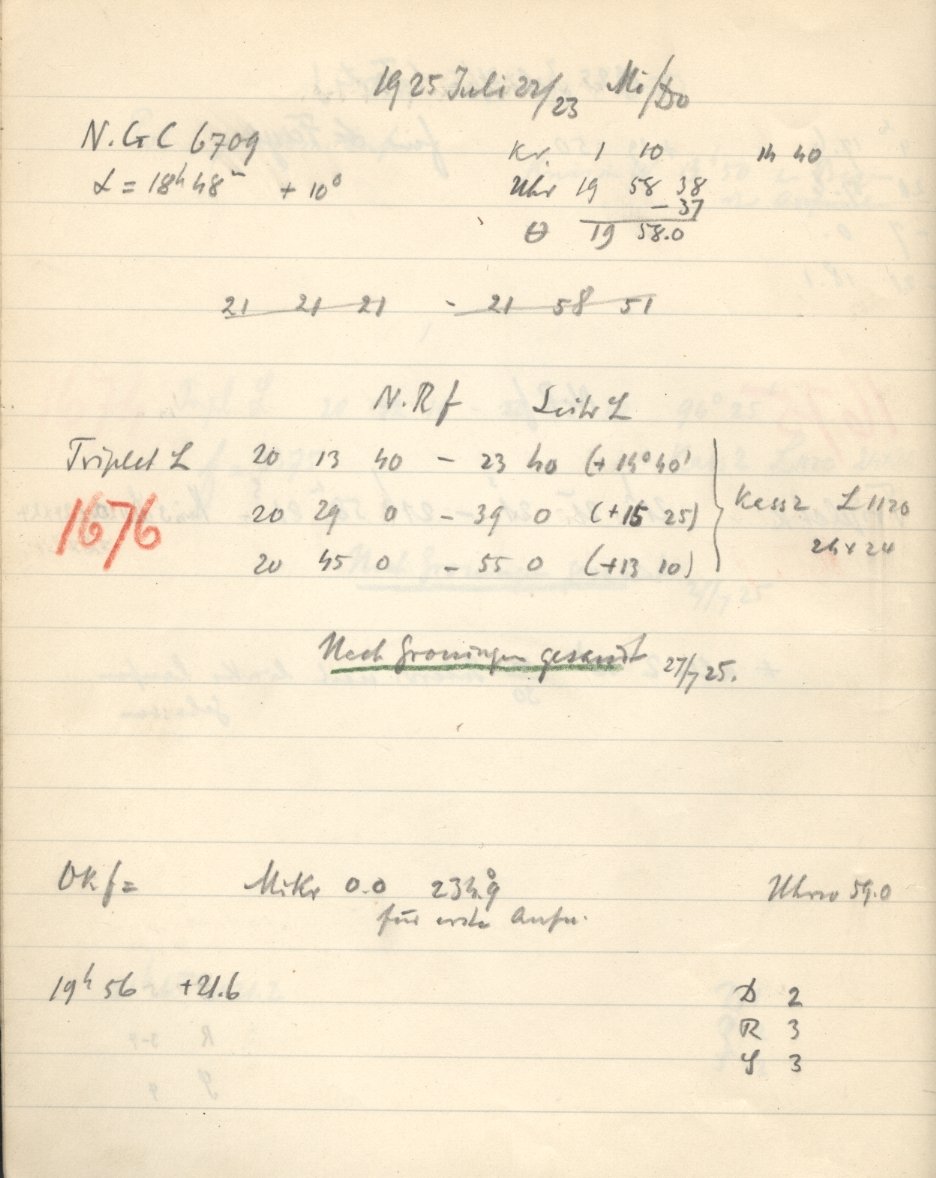 1925 Juli 22/23 Mi/Do
N.G.C 6709
α = 18h 48m + 10°
Kr. 1 10 1h 40
Uhr 19 58 38
- 37
θ 19 58.0
21 21 21 - 21 58 51
N.Rf
Triplet L 20 13 40 - 23 40 (+14°40'
1676 20 29 0 - 39 0 (+15 25)
20 45 0 - 55 0 (+13 10)
Kass 2 L 1120
24 x 24
Nach Groningen gesandt 27/7 25.
Okf= Mikr 0.0
für erste Aufn.
59.0
19h 56 +21.6
D 2
R 3
S 3